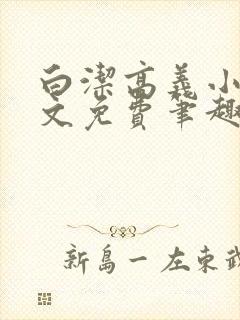 白潔高義小
文免费笔趣
新島一左東武